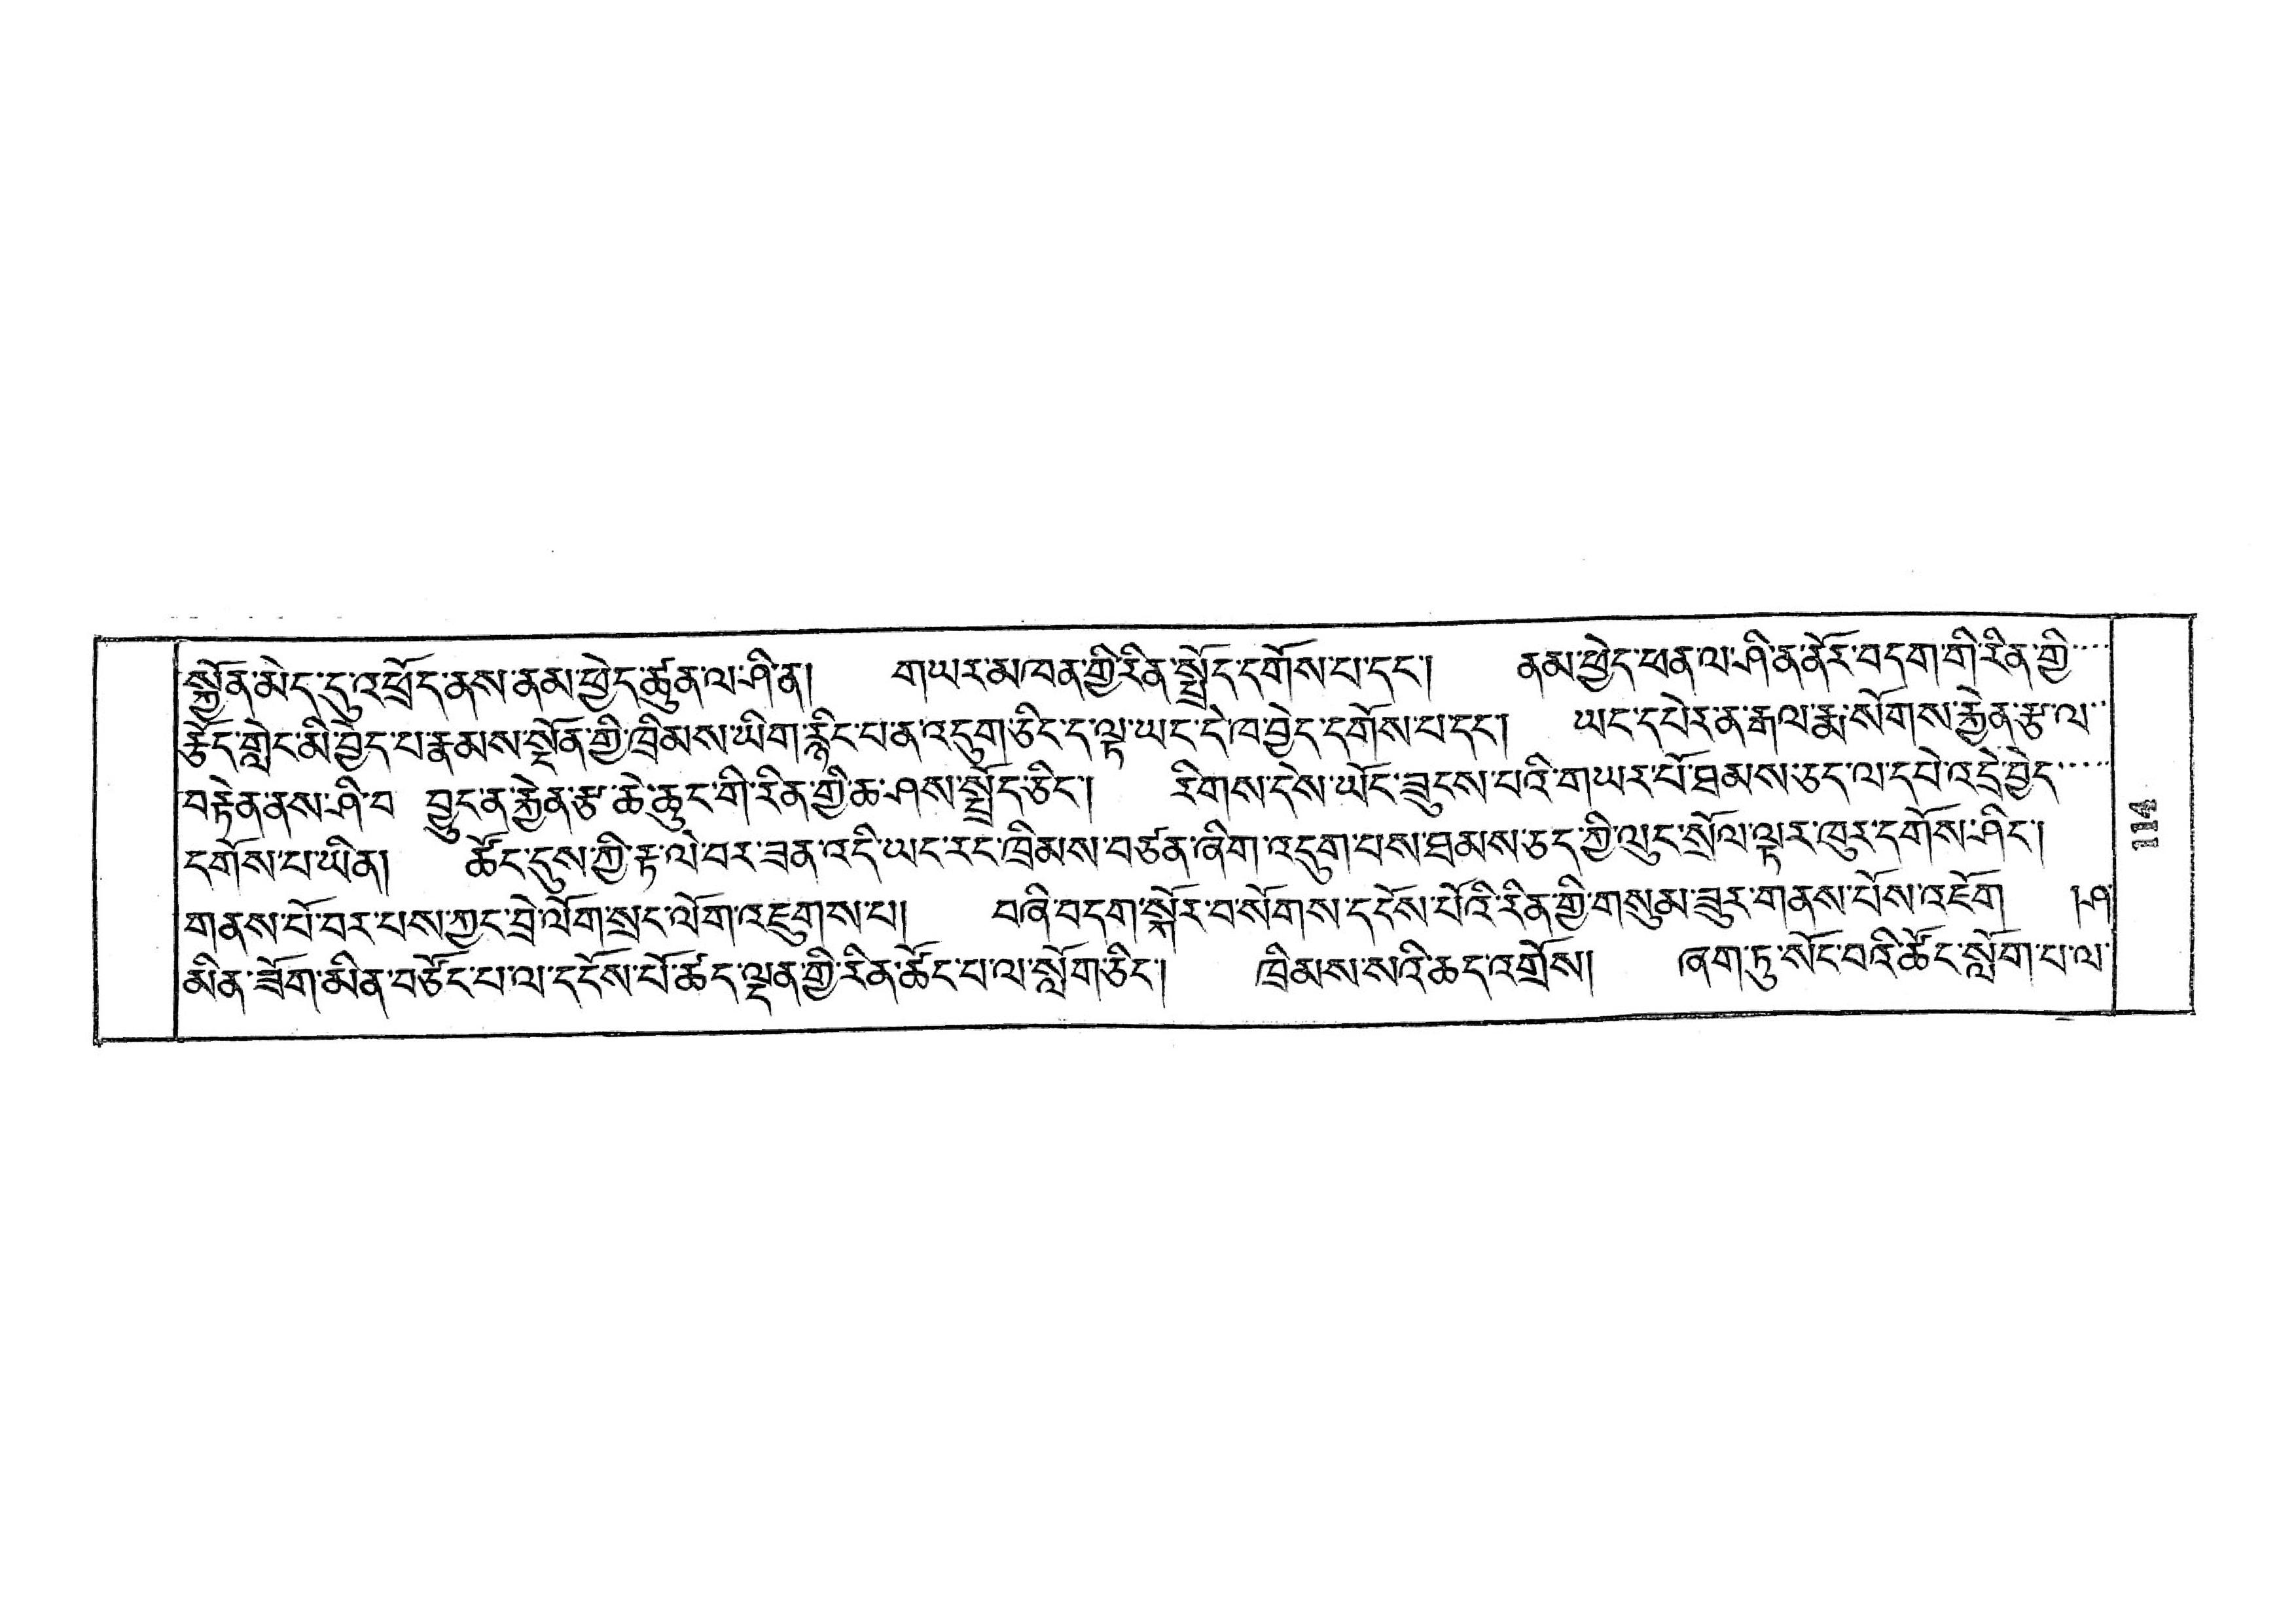 སྐྱོན་མེད་དུ་འཕྲོད་ནས་ནམ་ཕྱེད་ཚུན་ལ་ཤི་ན།  གཡར་མཁན་གྱི་རིན་སྤྲོད་དགོས་པ་དང༌།  ནམ་ཕྱེད་ཕན་ལ་ཤི་ན་ནོར་བདག་གི་རིན་གྱི་་་་
རྩོད་གླེང་མི་བྱེད་པ་རྣམས་སྔོན་གྱི་ཁྲིམས་ཡིག་རྙིང་པ་ན་འདུག་ཅིང་ད་ལྟ་ཡང་དེ་ཁ་བྱེད་དགོས་པ་དང༌།  ཡང་དཔེར་ན་རྒལ་རྨ་སོགས་རྐྱེན་རྩ་ལ་་
བརྟེན་ནས་ཤི་བ བྱུང་ན་རྐྱེན་རྩ་ཆེ་ཆུང་གི་རིན་གྱི་ཆ་ཤས་སྤྲོད་ཅིང༌།  རིགས་དེས་ཡོང་ཟུངས་པའི་གཡར་པོ་ཐམས་ཅད་ལ་དཔེ་འདྲེ་བྱེད་་་་
དགོས་པ་ཡིན།  ཚོང་དུས་ཀྱི་རྟ་ལེ་བར་ཟན་འདི་ཡང་རང་ཁྲིམས་བཙན་ཞིག་འདུག་པས་ཐམས་ཅད་ཀྱི་ལུང་སྲོལ་ལྟར་ཁུར་དགོས་ཤིང༌།
གནས་པོ་བར་པས་ཀྱང་བྲེ་ལོག་སྲང་ལོག་འཇུགས་པ།  བཞི་བདག་སྐོར་བ་སོགས་དངོས་པོའི་རིན་གྱི་གསུམ་ཟུར་གནས་པོས་འཇོག  །ཤ་
མིན་ཟོག་མིན་བཙོང་པ་ལ་དངོས་པོ་ཚད་ལྡན་གྱི་རིན་ཚོང་པ་ལ་སློག་ཅིང༌།  ཁྲིམས་སའི་ཆད་འགྲོས།  ཞག་ཏུ་སོང་བའི་ཚོང་སློག་པ་ལ་
114